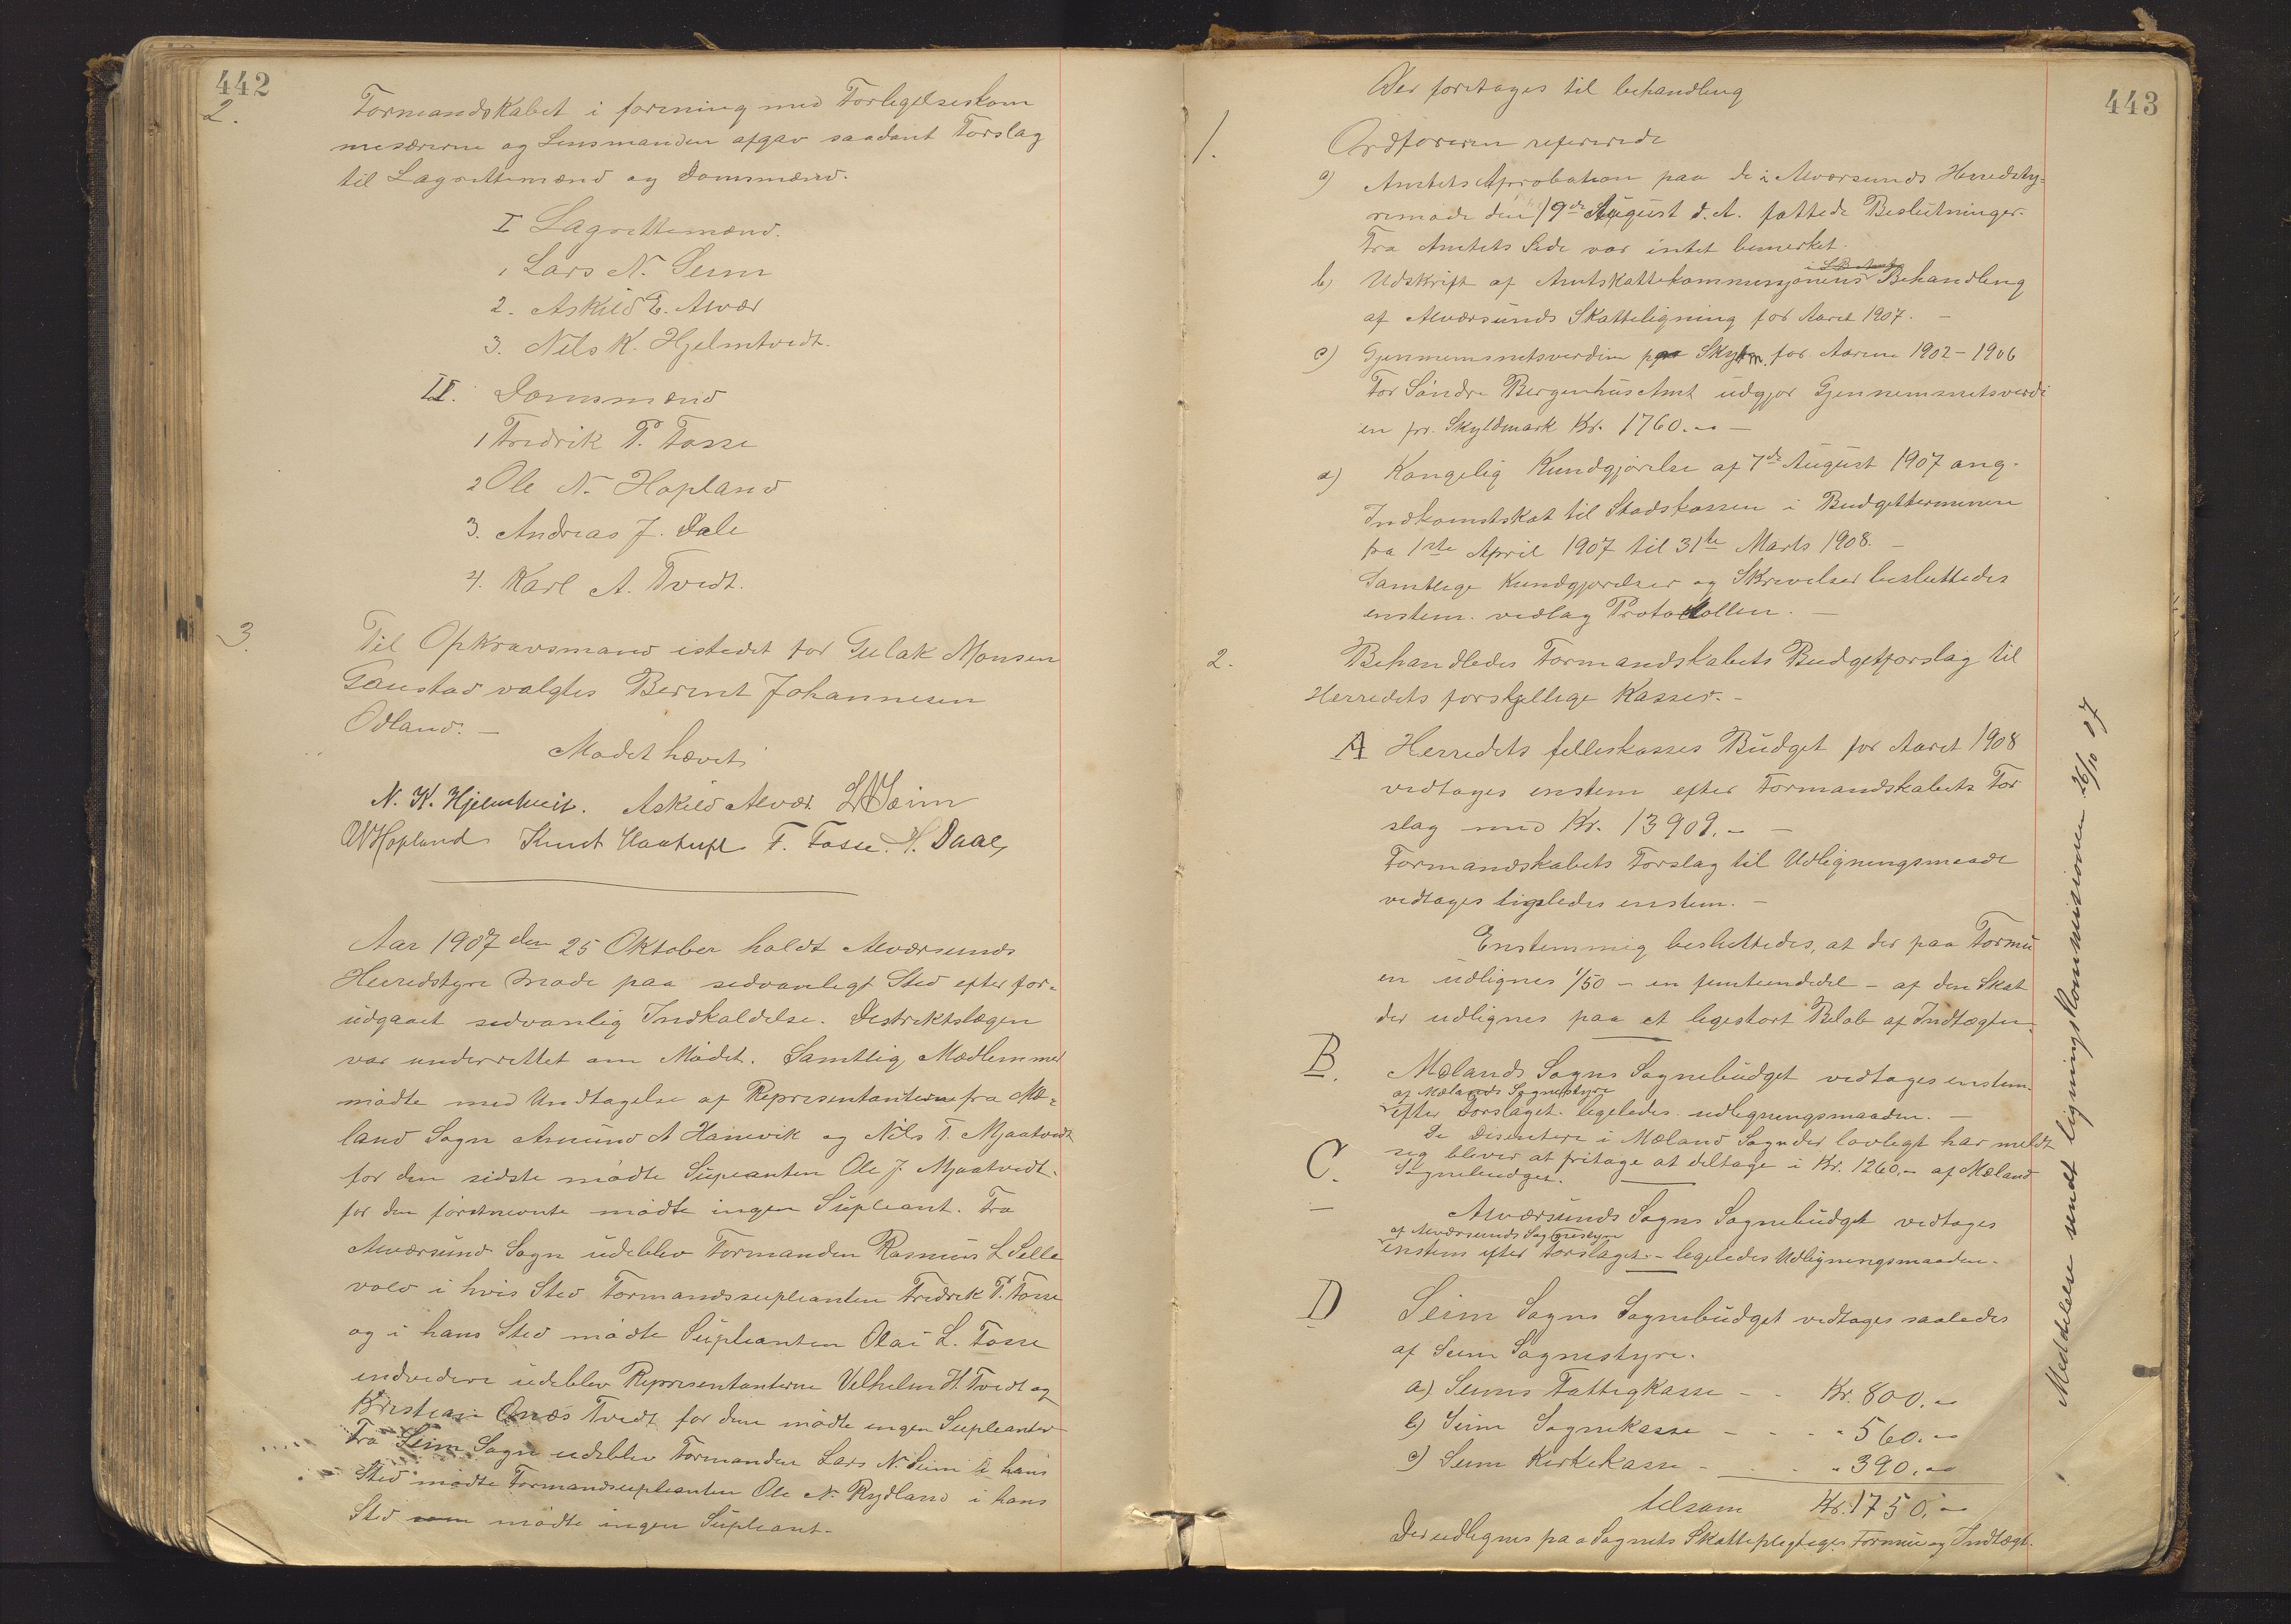 442
2.
Formandskabet i forening med Forligelseskom
mesærerne og Lensmanden afgav saadant Forslag
til Lagrettemænd og Domsmænd.
I Lagrettemænd.
1 Lars N. Seim
2. Askild E. Alvær
3. Nils K. Hjelmtvedt.
II. Domsmænd
1 Fredrik P. Fosse
2 Ole N. Hopland
3. Andreas J. Dale
4. Karl A. Tvedt.
3.
Til Opkravsmand istedet for Gulak Monsen
Gaustad valgtes Berent Johannesen
Odland. -
Mødet hævet
N. K. Hjelmtveit. Askild Alvær LNSeim
ONHopland Knut F. Fosse. A. Daae,
Aar 1907 den 25 Oktober holdt Alværsunds
Herredstyre Møde paa sedvanligt Sted efter for-
udgaaet sedvanlig Indkaldelse. Distriktslægen
var underrettet om Mødet. Samtlig Medlemmer
mødte med Undtagelse af Representanterne fra Mæ-
land Sogn Amund A Hanevik og Nils T. Mjaatvedt
for den sidste mødte Supeanten Ole J. Mjaatvedt.
for den førstnevnte mødte ingen Supleant. Fra
Alværsund Sogn udeblev Formanden Rasmus L Selle
vold i hvis Sted Formandssupleanten Fredrek P. Fosse
og i hans Sted mødte Supleanten Olai L. Fosse
endvedere udeblev Representanterne Velhelm H. Tvedt og
Kristian Onæs Tvedt for dem mødte ingen Supleanter
Fra Seim Sogn udeblev Formanden Lars N. Seim i hans
Sted mødte Formandsupleanten Ole N. Rydland i hans
Sted som mødte ingen Supleant.
443
Der foretages til behandling
1.
Ordføreren refererede
a) Amtets Aprobation paa de i Alværsunds Herredsty-
remøde den 19de August d.A. fattede Beslutninger.
Fra Amtets Side var intet bemerket.
b) Udskrift af Amtskattekommisjonens Behandling
af Alværsunds Skatteligning for Aaret 1907. -
c) Gjennemsnetsverdien paa Skyldm. for Aarene 1902-1906
For Søndre BergenhusAmt udgjør Gjennemsnetsverdi
en pr. Skyldmark Kr. 1760.- -
d) Kongelig Kundgjørelse af 7de August 1907 ang.
Indkomstskat til Stadskassen i Budgetterminen
fra 1ste April 1907 til 31te Marts 1908. -
Samtlige Kundgjørelser og Skrivelser besluttedes
enstem. vedlag Protokollen. -
2.
Behandledes Formandskabets Budgetforslag til
Herredets forskjellige Kasser. -
A Herredets felleskasses Budget for Aaret 1908
vedtages enstem efter Formandskabets For
slag med Kr. 13909. - -
Formandskabets Forslag til Udligningsmaade
vedtages ligeledes enstem. -
Enstemmig besluttedes, at der paa Formu
en udlignes 1/50 - en femteendedel - af den Skat
der udlignes paa et legestort Beløb af Indtægten
B. Mælands Sogns Sognebudget vedtages enstem.
af Mælands Sognestyre
efter Forslaget. legeledes udlegningsmaaden. -
De Disentere i Mæland Sogn der lovlegt har meldt
seg blever at fritage at deltage i Kr. 1260.- af Mæland
Sognebudget.
C. Alværsunds Sogns Sognebudget vedtages
af Alværsunds Sognestyre
enstem efter Forslaget - legeledes Udligningsmaaden.
D Seim Sogns Sognebudget vedtages saaledes
af Seim Sognestyre.
a) Seims Fattigkasse - - Kr. 800.-
b) Seim Sognekasse - - - " 560.-
c) Seim Kirkekasse - - - " 390.-
telsam Kr. 1750.-
Der udlegnes paa Sognets Skattepligtiges Formue og Indtægt.
Meddelelse sendt ligningskommissionen 26/10 07